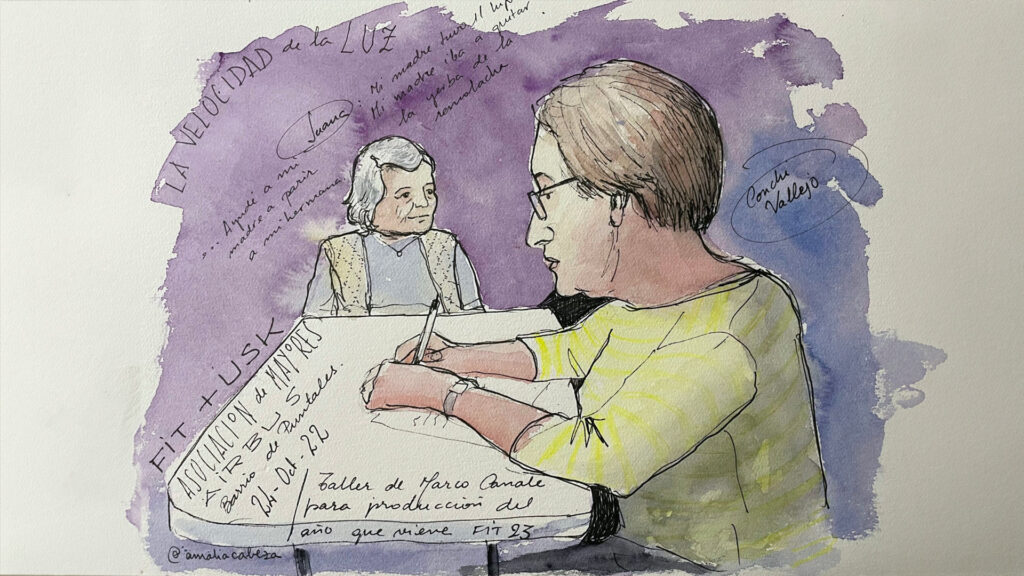 LA VELOCIDAD de la LUZ
Juana: Mi madre tuvo 11
Mi madre iba a quitar
la yerba de la
remolacha
... Ayudé a mi
madre a parir
a mi hermana
Conchi
Vallejo
FiT + USK
ASOCIACIÓN de MAYORES
Barrio de Puntales.
24-Oct-22
Taller de Marco Canale
para producción del
año que viene FiT 23
@amaliacabeza